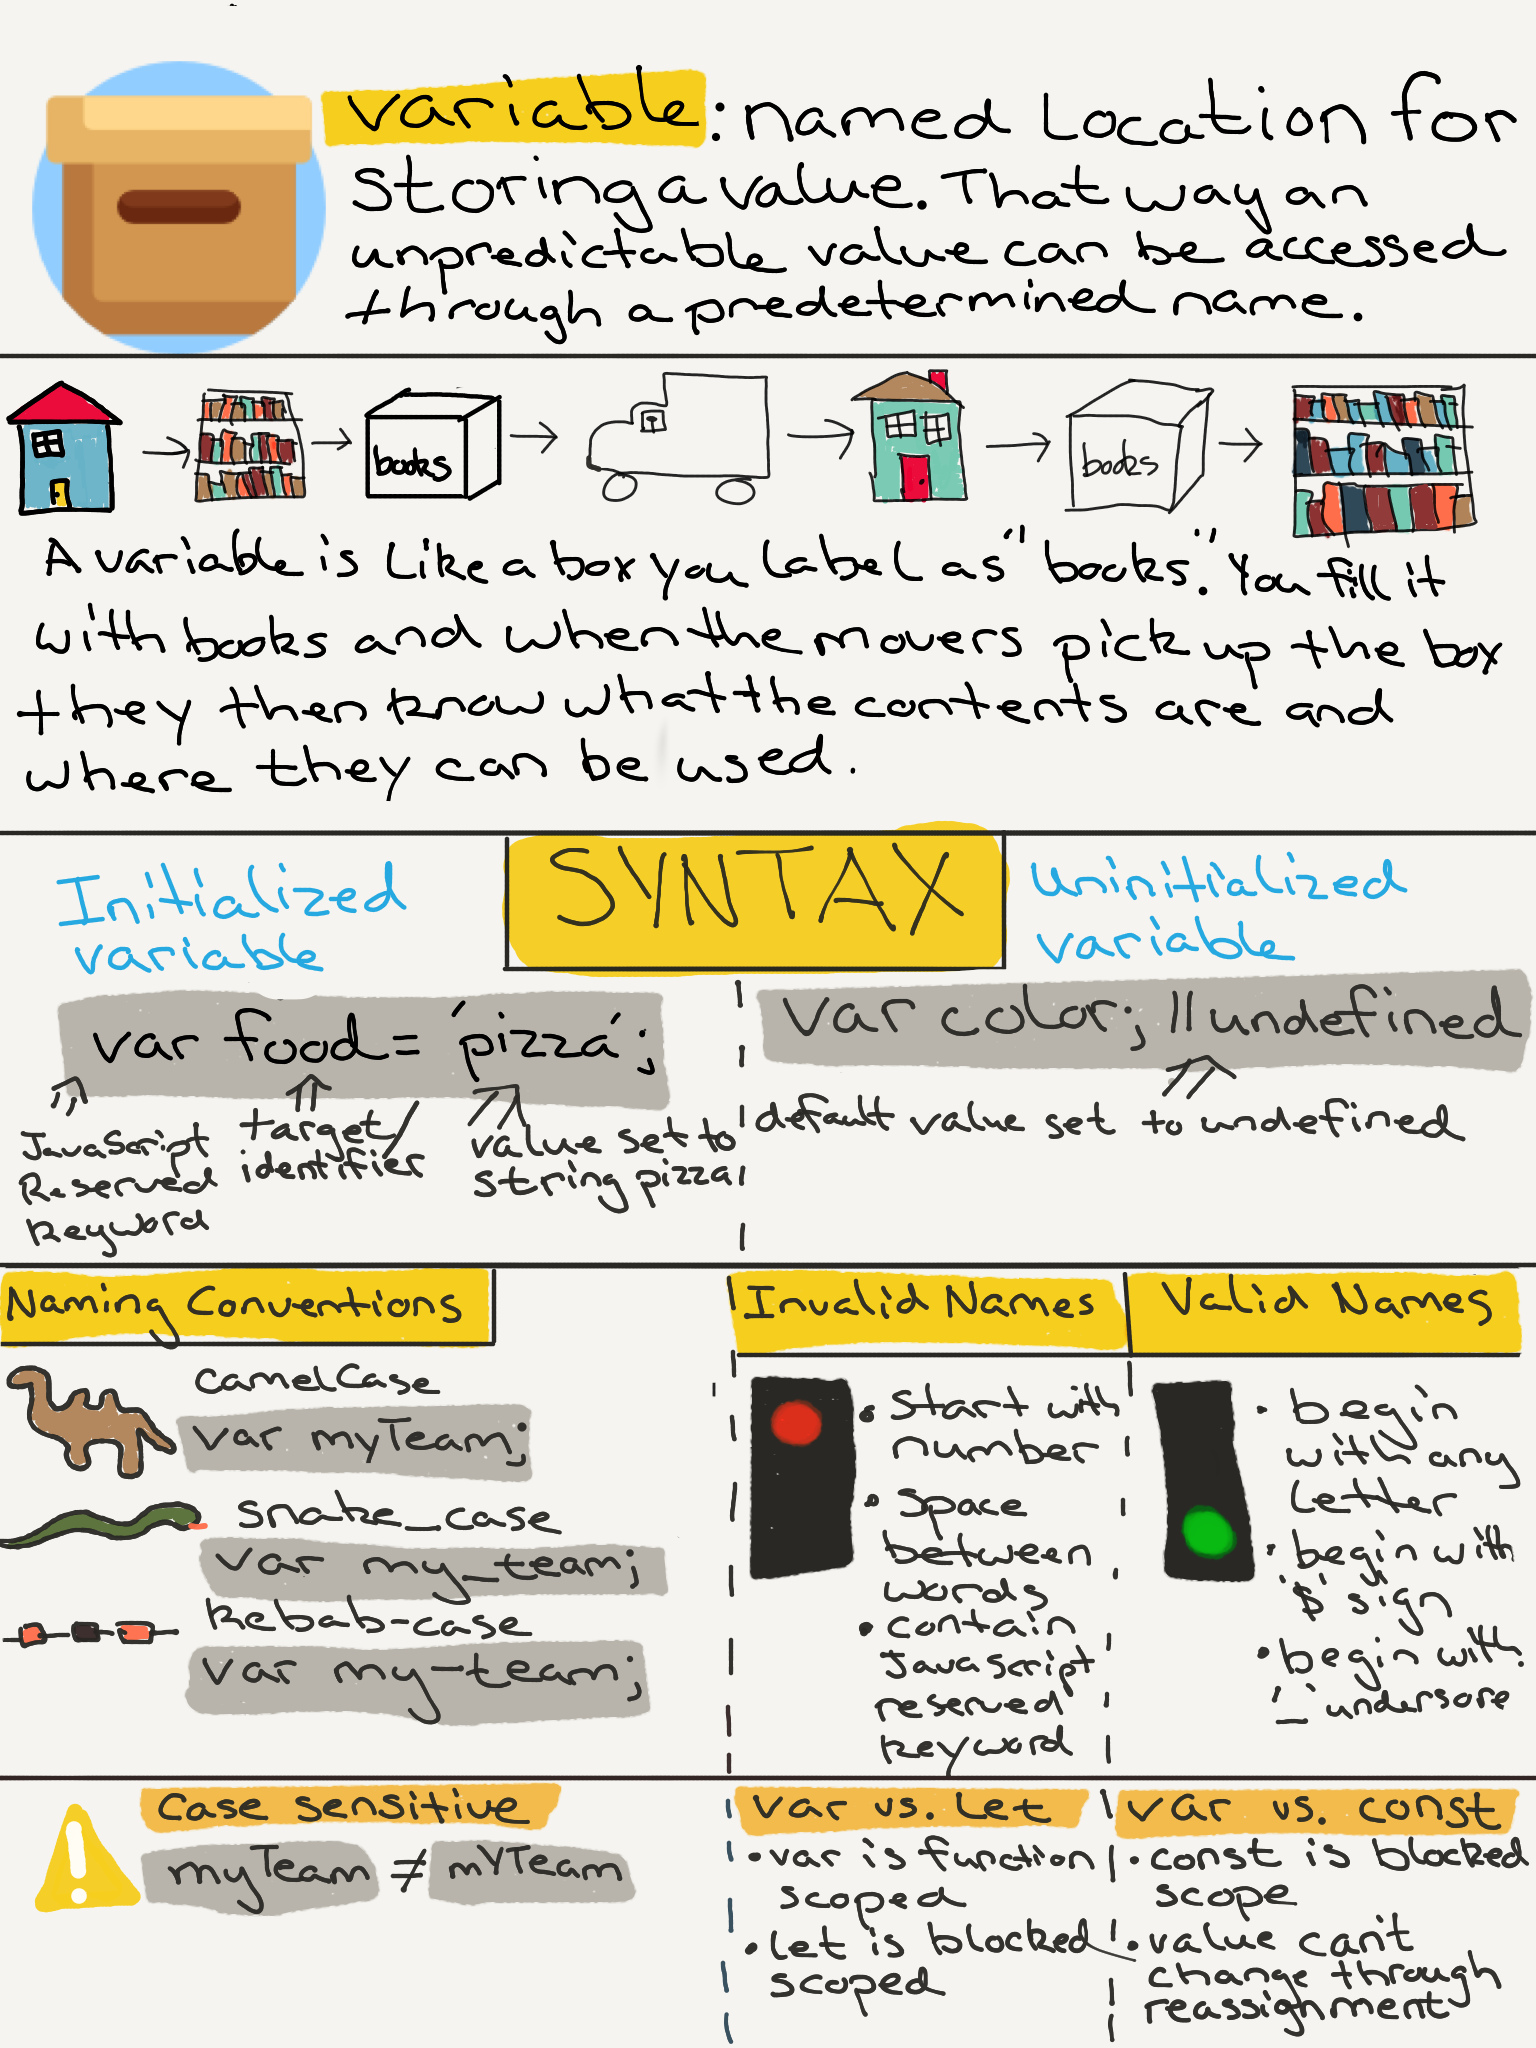 variable: named location for
storing a value. That way an
unpredictable value can be accessed
through a predetermined name.
books
books
A variable is like a box you label as "books". You fill it
with books and when the movers pick up the box
they then know what the contents are and
where they can be used.
SYNTAX
Initialized
variable
var food = 'pizza';
JavaScript
Reserved
keyword
target/
identifier
value set to
string pizza
uninitialized
variable
var color; //undefined
default value set to undefined
Naming Conventions
camelCase
var myTeam;
snake_case
var my_team;
kebab-case
var my-team;
Invalid Names
• start with
number
• space
between
words
• contain
Javascript
reserved
keyword
Valid Names
• begin
with any
letter
• begin with
'$' sign
• begin with
'_' undersore
Case sensitive
myTeam ≠ mYTeam
var vs. let
• var is function
scoped
• let is blocked
scoped
var vs. const
• const is blocked
scope
• value can't
change through
reassignment